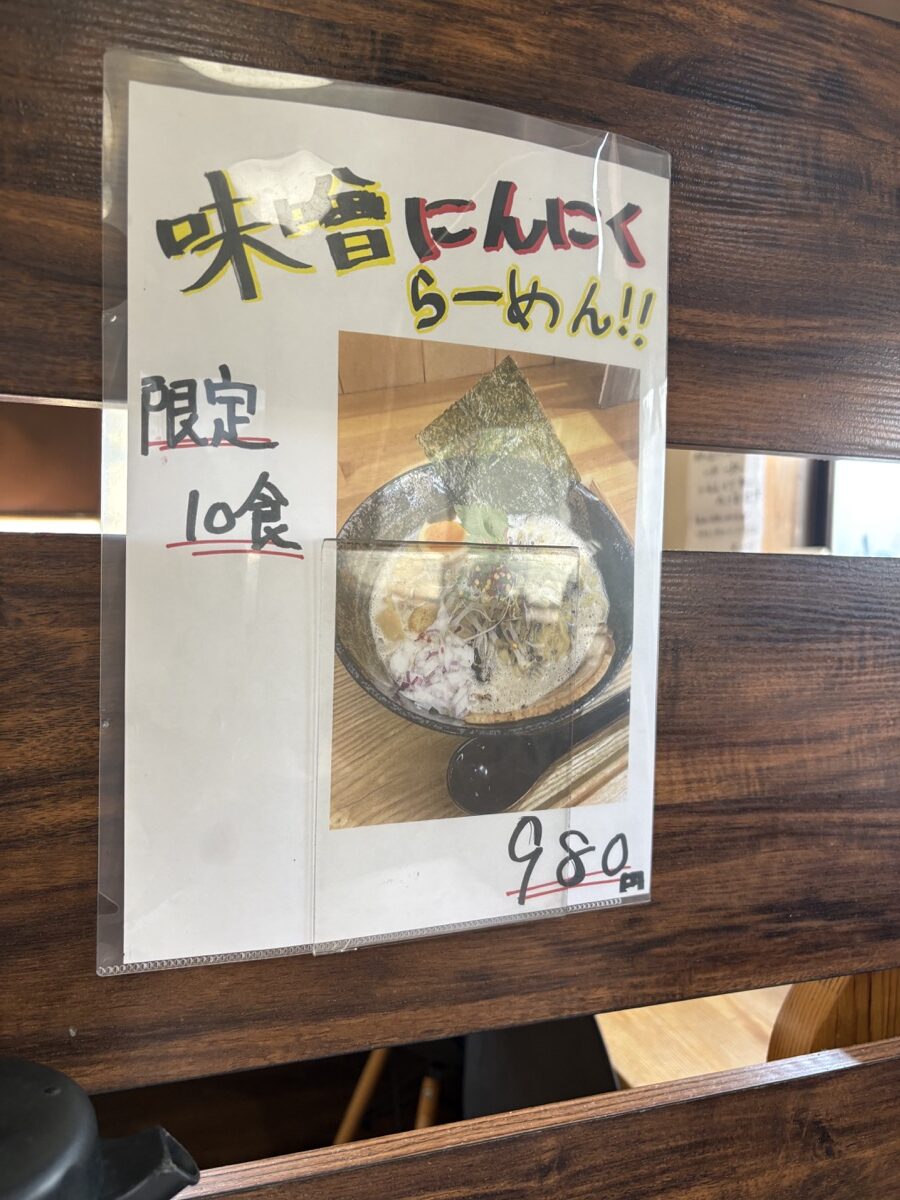 味噌にんにく
らーめん!!
限定
10食
980円